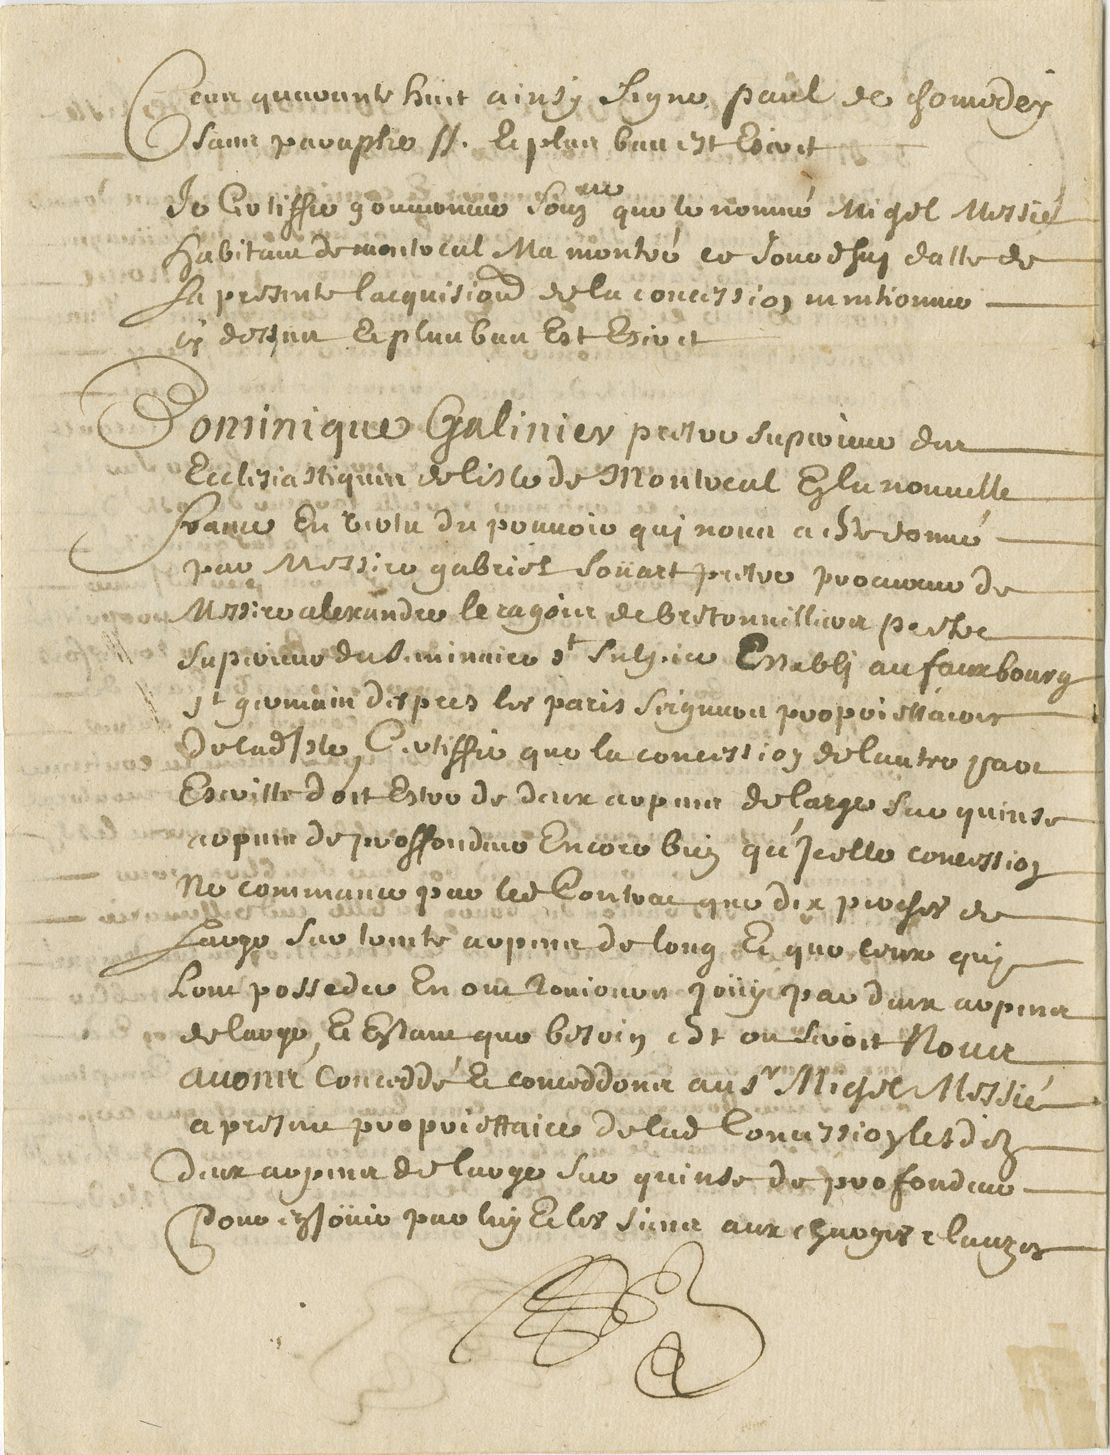 Cens quarante huict ainsy signe paul de chomedey
sans paraphe //. Et plus bas est Escrit
Je Certiffie gouverneur souz que le nommé Migel Messié
habitant de montreal Ma montré ce Jourdhuy datte de
La presente lacquisiond de la concession mentionnee
cy dessus Et plus bas Est Escrit
Dominique Galinier prestre superieur des
Ecclesiastiques de lisle de Montreal En la nouvelle
france En vertu du pouvoir qui nous a este donné
par Messire gabriel Soüart prestre procureur de
Messire alexandre le ragois de bretonvilliers prestre
superieur du seminaire st Sulpice Establi au fauxbourg
st germain des pres les paris seigneurs proprietaires
De lad Isle, Certiffie que la concession de lautre part
Escritte doit Estre de deux arpens de large sur quinse
arpens de proffondeur Encore bien qu'Jcelle concession
Ne commance par led Contrac que dix perches de
Large sur trente arpens de long Et que ceux qui
Lont possedee En ont tousiours Joüy par deux arpens
de large, Et Estant que besoin est ou seroit Nous
avons Conceddé & conceddons au sr Michel Messié
a present proprietaire de lad Concession lesdiz
deux arpens de large sur quinse de profondeur
Pour en Joüir par luy Et les siens aux charges clauzes